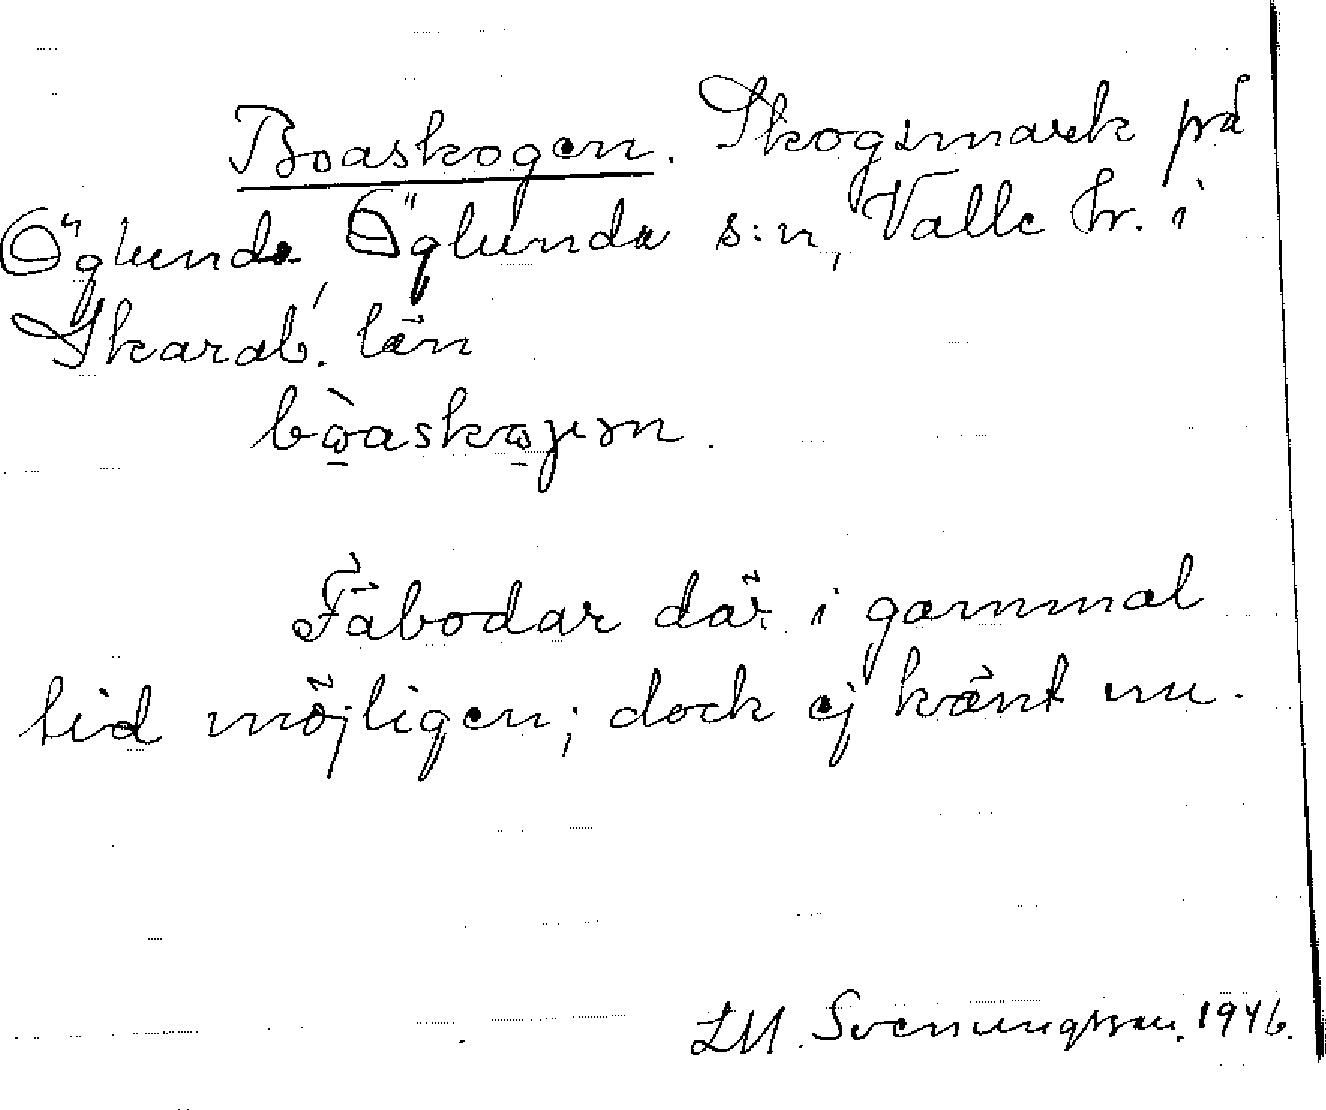 Boaskogen. Skogsmark på
Öglunda, Öglunda s:n, Valle hr. i
Skarab. län
bòaskoɲ̣en.
Fäbodar där i gammal
tid möjligen; dock ej känt nu.
LM. Svenungsson. 1946.